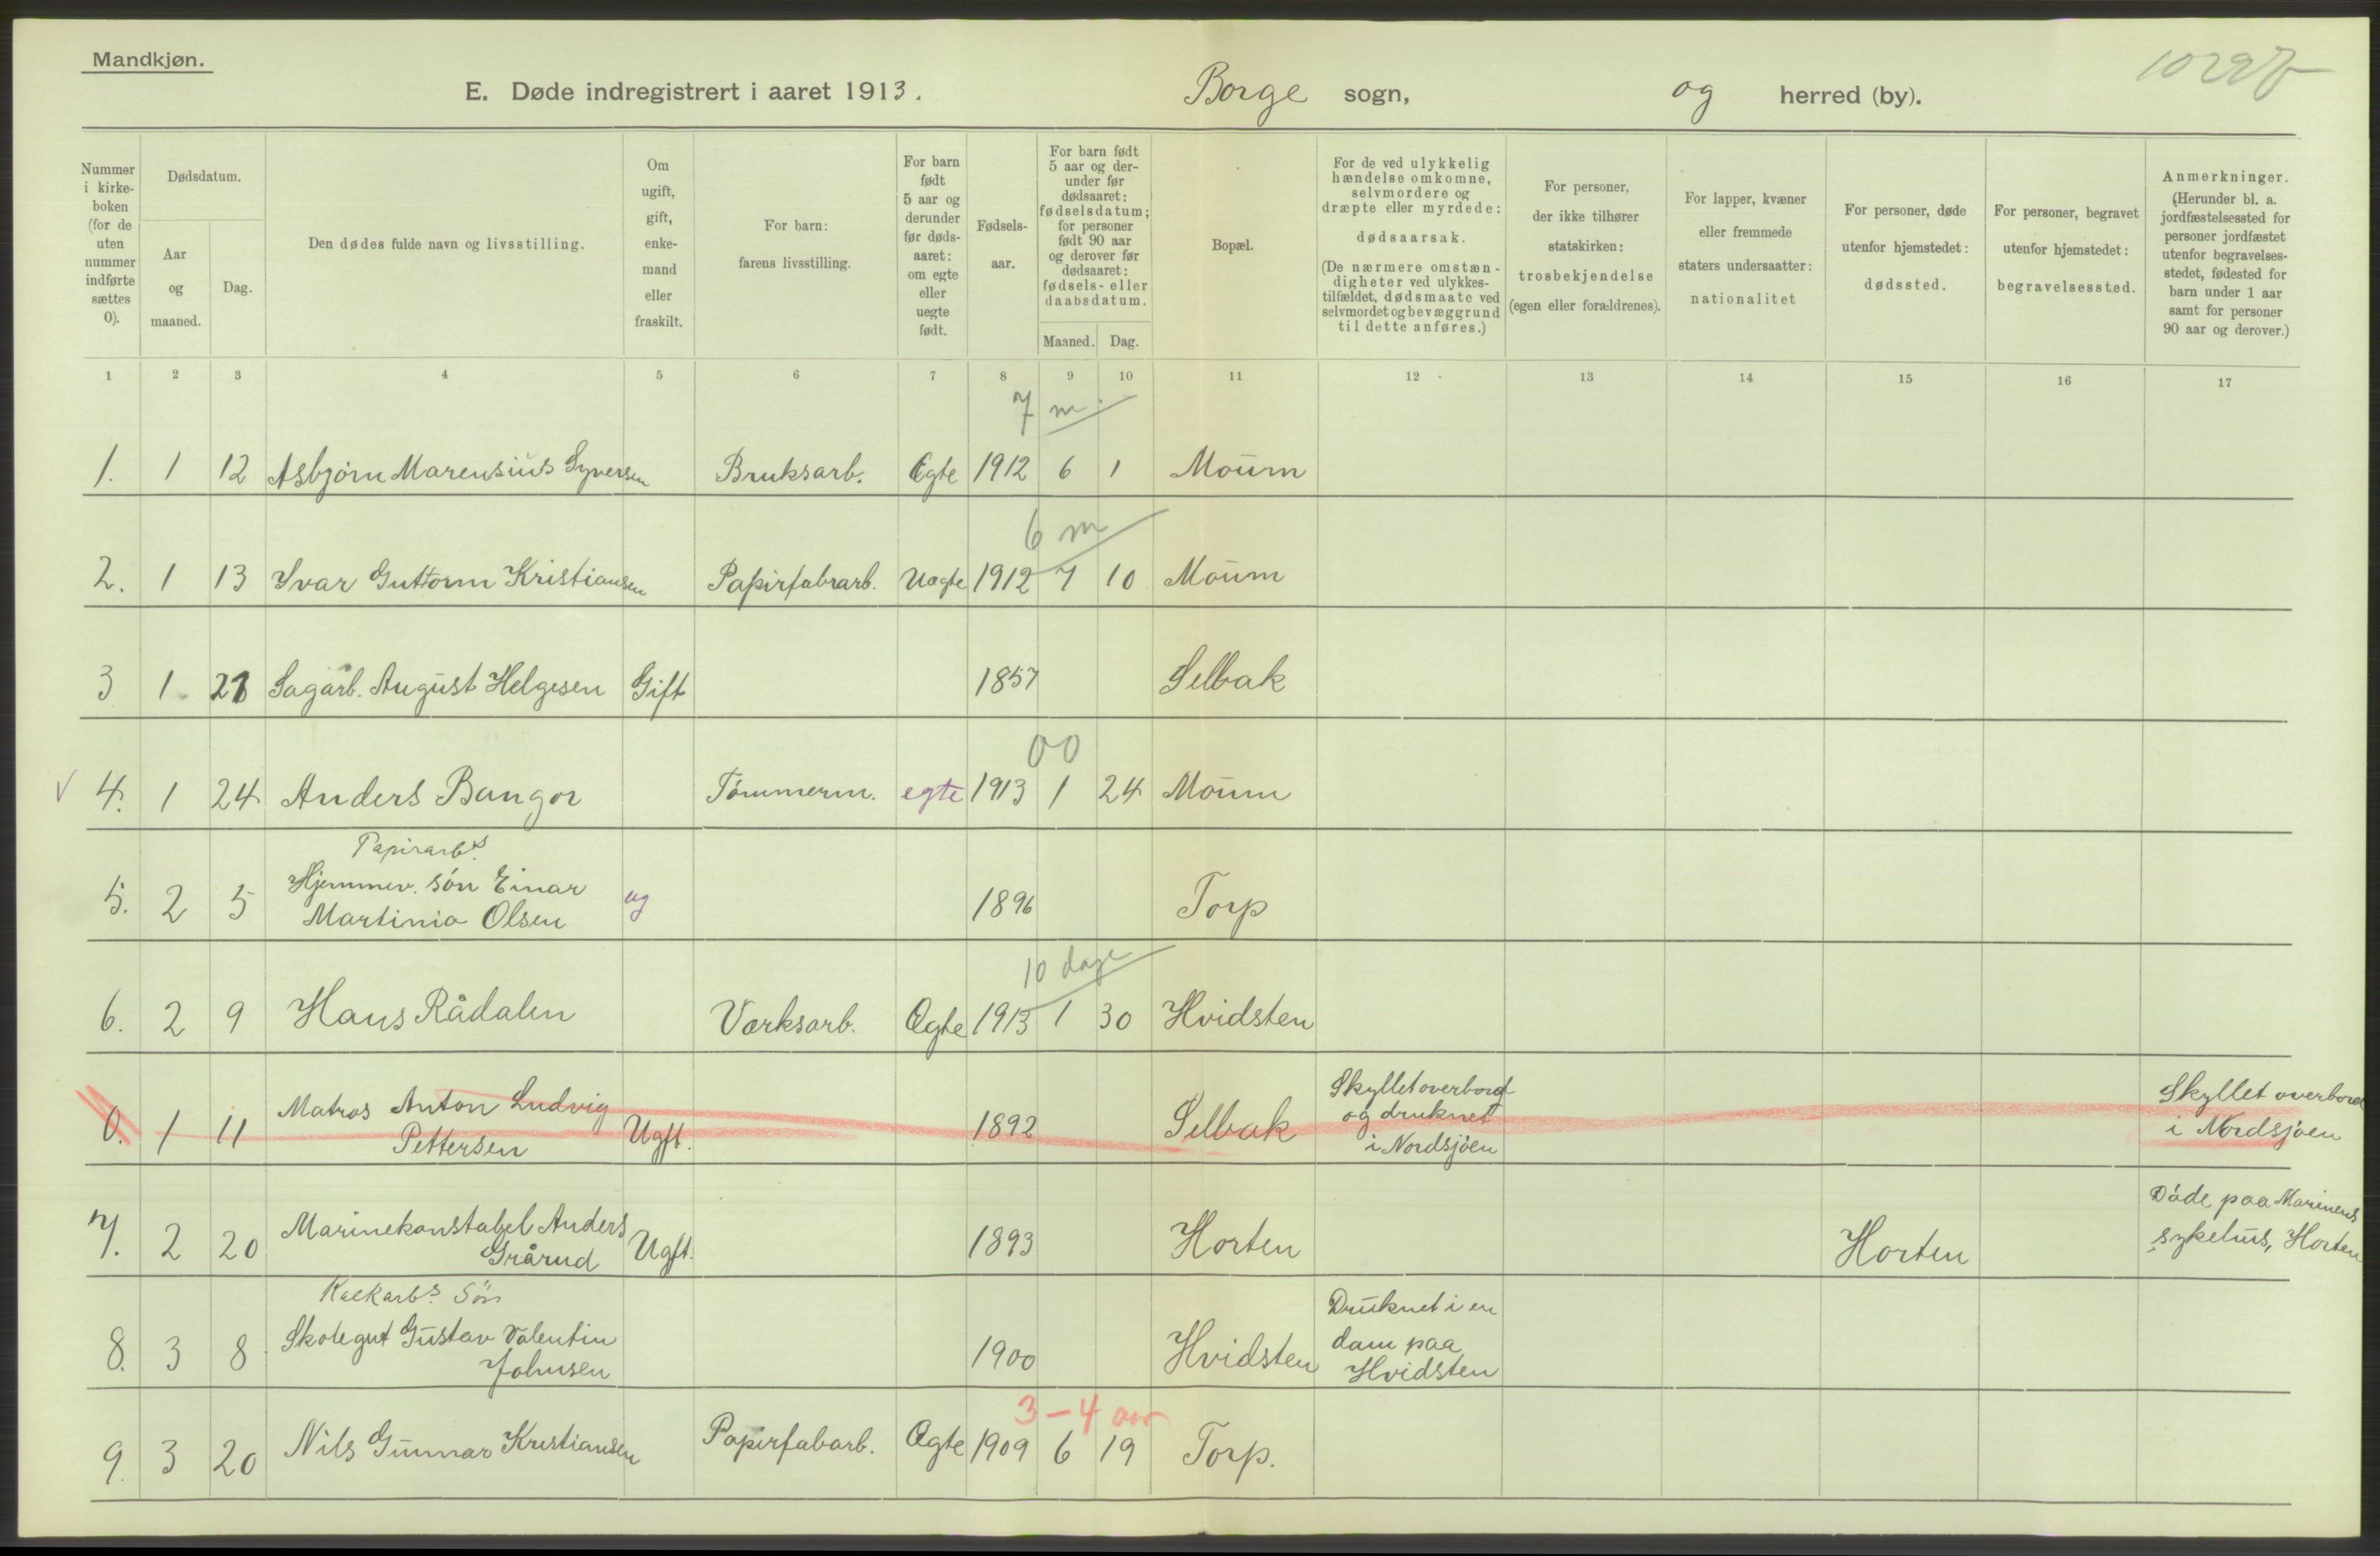 Mandkjøn.
E. Døde indregistrert i aaret 1913. Borge sogn, og herred (by).
Nummer i kirkeboken (for de uten nummer indførte sættes 0).
Dødsdatum.
Aar og maaned.
Dag.
Den dødes fulde navn og livsstilling.
Om ugift, gift, enkemand eller fraskilt.
For barn: farens livsstilling.
For barn født 5 aar og derunder før dødsaaret: om egte eller uegte født.
Fødselsaar.
For barn født 5 aar og derunder før dødsaaret: fødselsdatum; for personer født 90 aar og derover før dødsaaret: fødsels- eller daabsdatum.
Maaned. Dag.
Bopæl.
For de ved ulykkelig hændelse omkomne, selvmordere og dræpte eller myrdede: dødsaarsak. (De nærmere omstændigheter ved ulykkestilfældet, dødsmaate ved selvmordet og bevæggrund til dette anføres.)
For personer, der ikke tilhører statskirken: trosbekjendelse (egen eller forældrenes).
For lapper, kvæner eller fremmede staters undersaatter: nationalitet
For personer, døde utenfor hjemstedet: dødssted.
For personer, begravet utenfor hjemstedet: begravelsessted.
Anmerkninger. (Herunder bl. a. jordfæstelsessted for personer jordfæstet utenfor begravelsesstedet, fødested for barn under 1 aar samt for personer 90 aar og derover.)
1 2 3 4 5 6 7 8 9 10 11 12 13 14 15 16 17
7 m.
1. 1 12 Asbjørn Marensius Syversen Bruksarb. Egte 1912 6 1 Moum
6 m
2. 1 13 Yvar Guttorm Kristiansen Papirfabrarb. Uegte 1912 7 10 Moum
3 1 Sagarb. August Helgesen Gift 1857 Selbak
00
4. 1 24 Anders Bangor Tømmerm. egte 1913 1 24 Moum
Papirarbs
5. 2 5 Hjemmev. søn Einar ug 1896 Torp
Martinio Olsen
10 dage
6. 2 9 Hans Rådalen Værksarb. Ægte 1913 1 30 Hvidsten
0. 1 11 Matros Anton Ludvig Ugft. 1892 Selbak Skyllet overbord Skyllet overbord
Pettersen og druknet i Nordsjøen
i Nordsjøen
7. 2 20 Marinekonstabel Anders Ugft. 1893 Horten Horten Døde paa Marinens
Grårud sykehus, Horten
Søn
8. 3 8 Skolegut Gustav Valentin 1900 Hvidsten Druknet i en
Johnsen dam paa
Hvidsten
3 – 4 aar
9. 3 20 Nils Gunnar Kristiansen Papirfabarb. Ægte 1909 6 19 Torp.